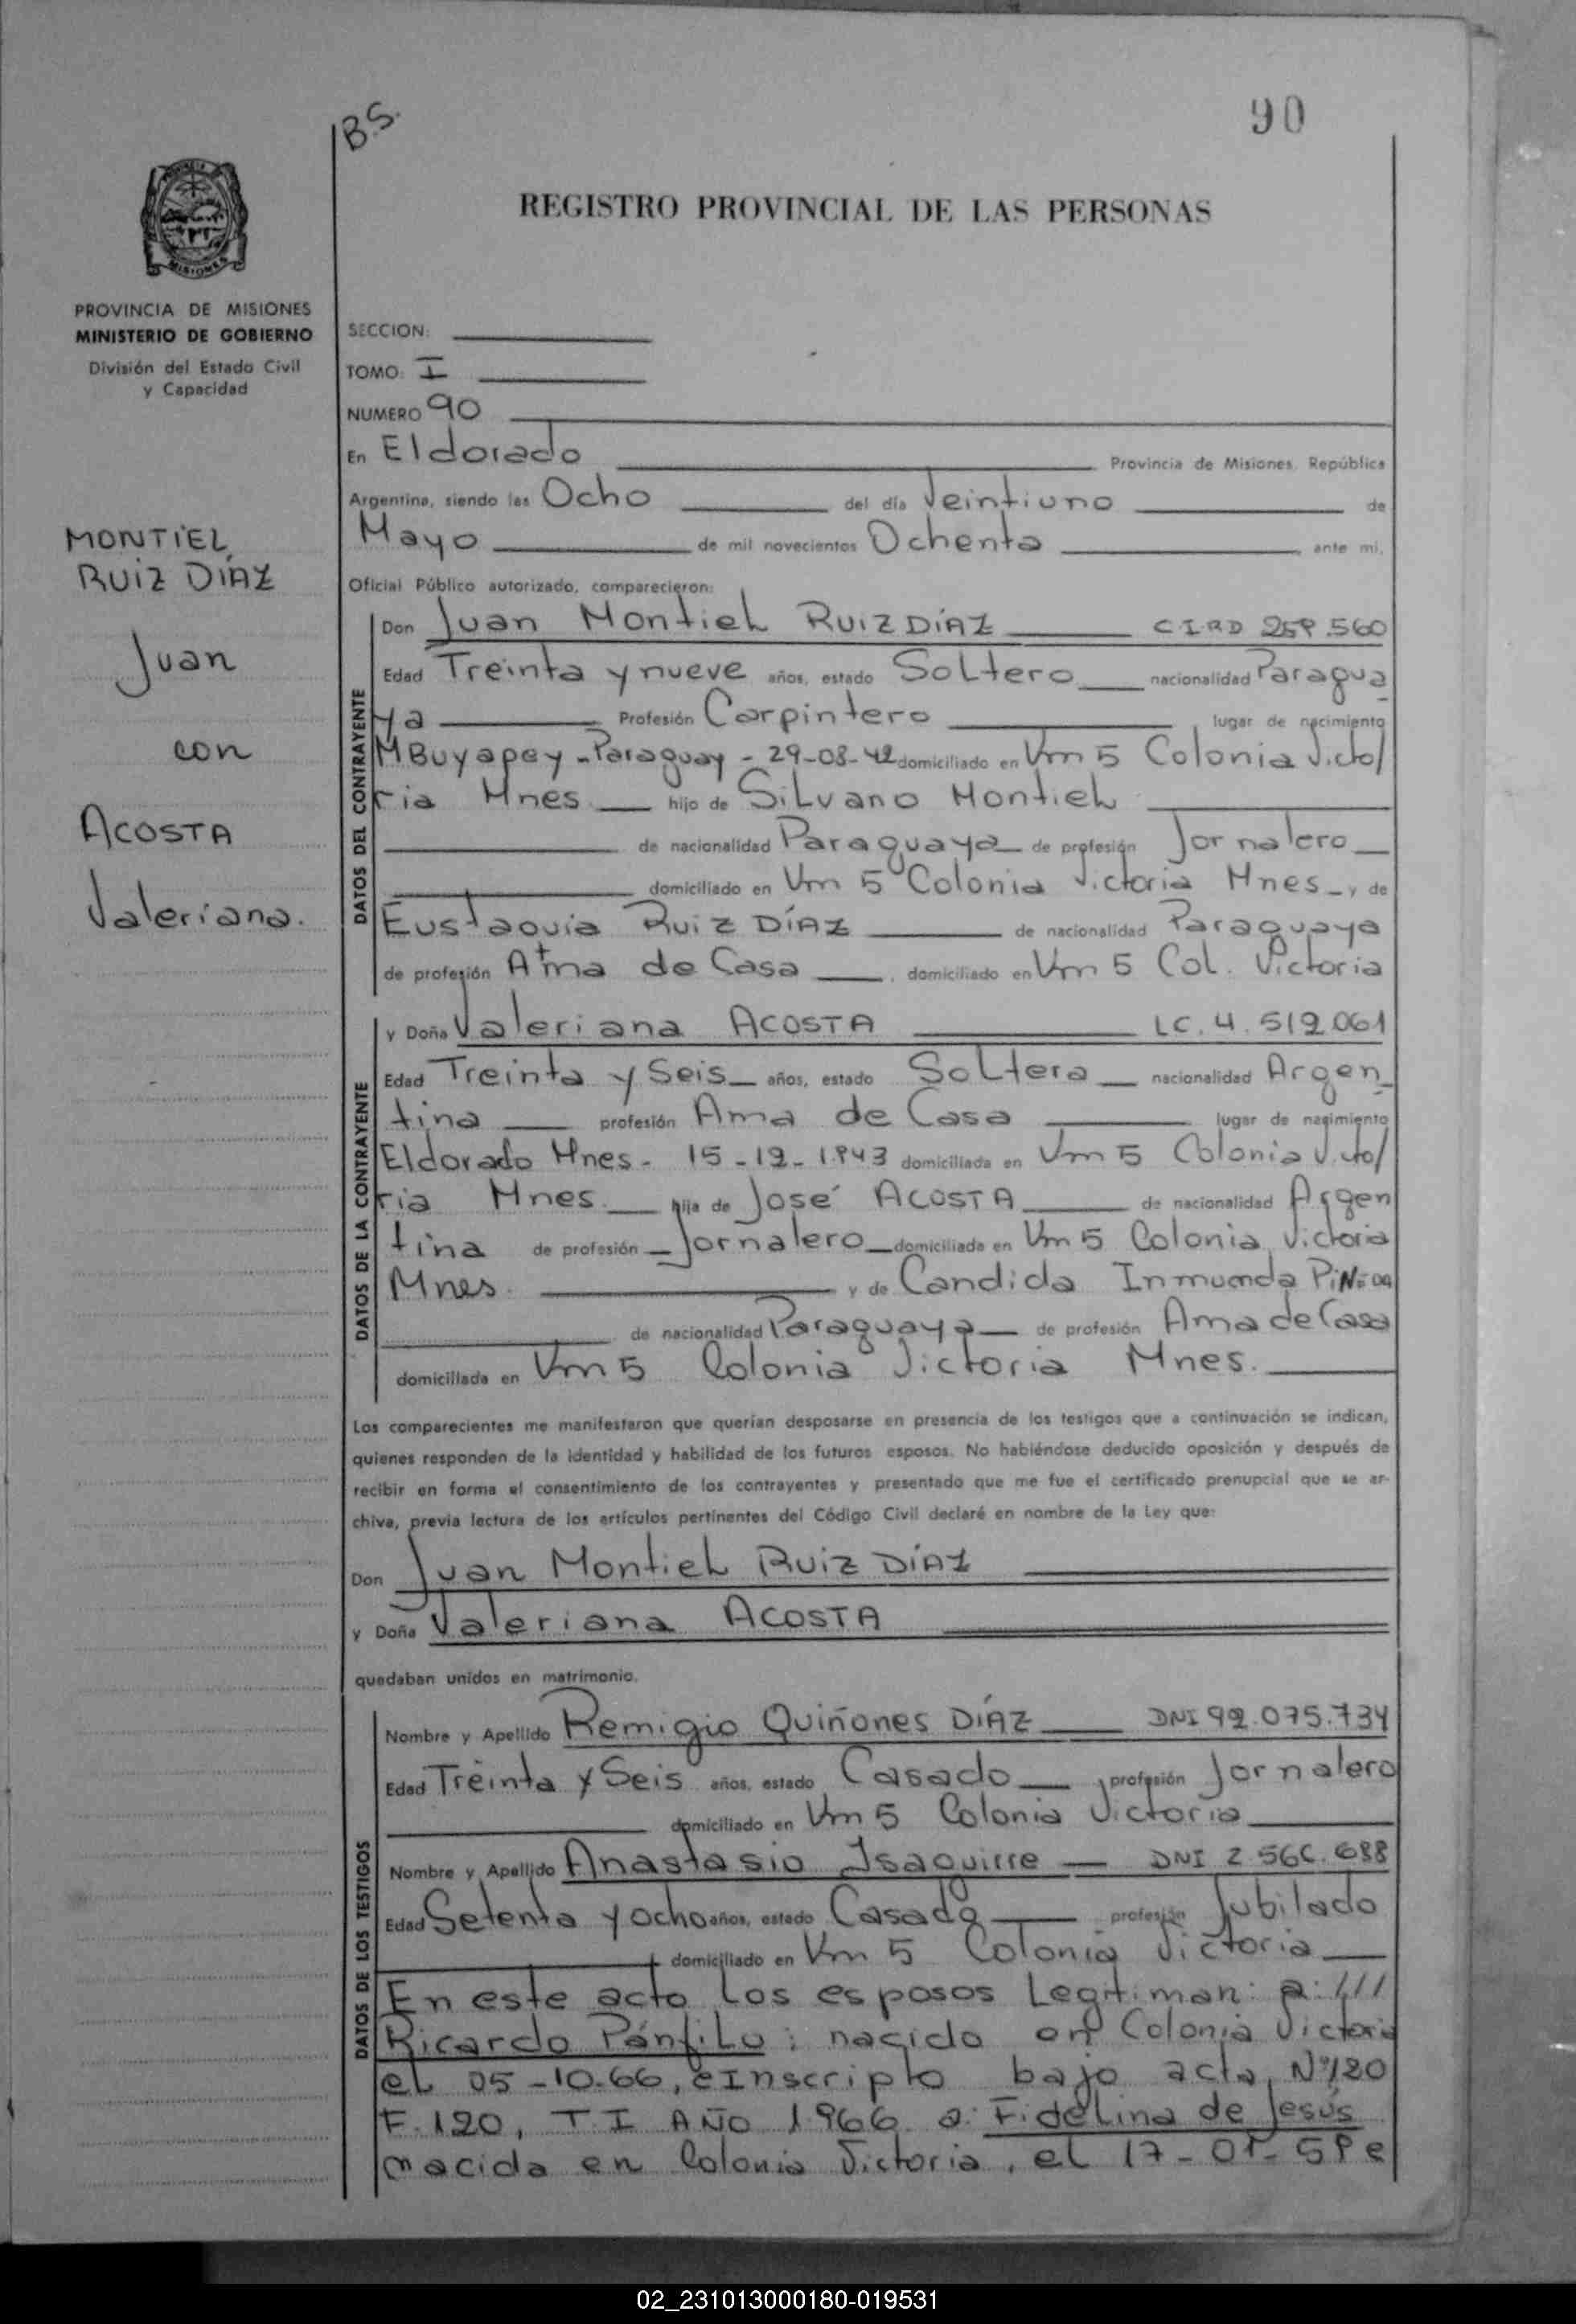 B.S.
90
REGISTRO PROVINCIAL DE LAS PERSONAS
MISIONES
PROVINCIA DE MISIONES
MINISTERIO DE GOBIERNO
División del Estado Civil
y Capacidad
MONTIEL
RUIZ DÍAZ
Juan
con
ACOSTA
Valeriana.
SECCION:
TOMO: I
NUMERO 90
En Eldorado Provincia de Misiones, República
Argentina, siendo las Ocho del día Veintiuno de
Mayo de mil novecientos Ochenta, ante mi,
Oficial Público autorizado, comparecieron:
DATOS DEL CONTRAYENTE
Don Juan Montiel RUIZ DÍAZ C.I.RD 259.560
Edad Treinta y nueve años, estado Soltero nacionalidad Paragua
ya Profesión Carpintero lugar de nacimiento
MBuyapey - Paraguay - 29-03-42 domiciliado en Km 5 Colonia Victo/
ria Mnes. hijo de Silvano Montiel
de nacionalidad Paraguaya de profesión Jornalero
domiciliado en Km 5 Colonia Victoria Mnes - y de
Eustaquia RUIZ DÍAZ de nacionalidad Paraguaya
de profesión Ama de Casa, domiciliado en Km 5 Col. Victoria
DATOS DE LA CONTRAYENTE
y Doña Valeriana ACOSTA LC. 4.512.061
Edad Treinta y Seis años, estado Soltera nacionalidad Argen
tina profesión Ama de Casa lugar de nacimiento
Eldorado Mnes - 15-12-1943 domiciliada en Km 5 Colonia Victo/
ria Mnes. hija de José ACOSTA de nacionalidad Argen
tina de profesión Jornalero domiciliado en Km 5 Colonia Victoria
Mnes. y de Candida Inmunda
de nacionalidad Paraguaya de profesión Ama de Casa
domiciliada en Km 5 Colonia Victoria Mnes.
Los comparecientes me manifestaron que querían desposarse en presencia de los testigos que a continuación se indican,
quienes responden de la identidad y habilidad de los futuros esposos. No habiéndose deducido oposición y después de
recibir en forma el consentimiento de los contrayentes y presentado que me fue el certificado prenupcial que se ar-
chiva, previa lectura de los artículos pertinentes del Código Civil declaré en nombre de la Ley que:
Don Juan Montiel RUIZ DÍAZ
y Doña Valeriana ACOSTA
quedaban unidos en matrimonio.
DATOS DE LOS TESTIGOS
Nombre y Apellido Remigio Quiñones DÍAZ DNI 92.075.734
Edad Treinta y Seis años, estado Casado, profesión Jornalero
domiciliado en Km 5 Colonia Victoria
Nombre y Apellido Anastasio Isaguirre DNI 2.566.688
Edad Setenta y ocho años, estado Casado profesión Jubilado
domiciliado en Km 5 Colonia Victoria
En este acto los esposos Legitiman: a: ///
Ricardo Pánfilo; nacido en Colonia Victoria
el 05-10-66, e Inscripto bajo acta Nº 120
F. 120, T. I AÑO 1966 a: Fidelina de Jesús
nacida en Colonia Victoria, el 17-
02_231013000180-019531